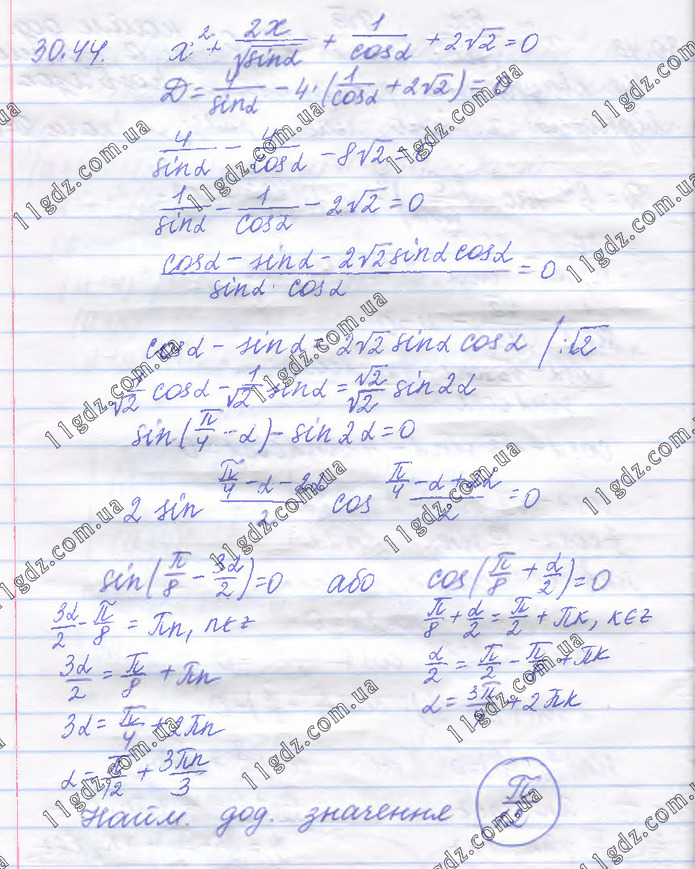 30.44. x² + 2x/√sinα + 1/cosα + 2√2 = 0
D = 4/sinα − 4·(1/cosα + 2√2) = 0
4/sinα − 4/cosα − 8√2 = 0
1/sinα − 1/cosα − 2√2 = 0
(cosα − sinα − 2√2 sinα cosα)/(sinα · cosα) = 0
cosα − sinα = 2√2 sinα cosα /:√2
1/√2 cosα − 1/√2 sinα = √2/√2 sin2α
sin(π/4 − α) − sin2α = 0
2 sin (π/4 − α − 2α)/2 cos (π/4 − α + 2α)/2 = 0
sin(π/8 − 3α/2) = 0 або cos(π/8 + α/2) = 0
3α/2 − π/8 = πn, n∈z
π/8 + α/2 = π/2 + πk, k∈z
3α/2 = π/8 + πn
α/2 = π/2 − π/8 + πk
3α = π/4 + 2πn
α = 3π/4 + 2πk
α = π/12 + 3πn/3
Найм. дод. значення π/12
11gdz.com.ua